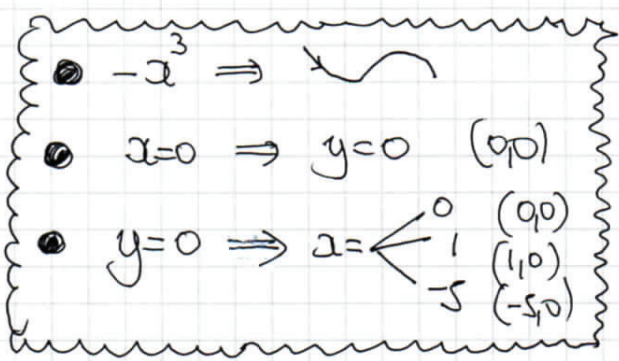 ● -x³ ⇒
● x=0 ⇒ y=0 (0,0)
● y=0 ⇒ x= 0 (0,0)
1 (1,0)
-5 (-5,0)